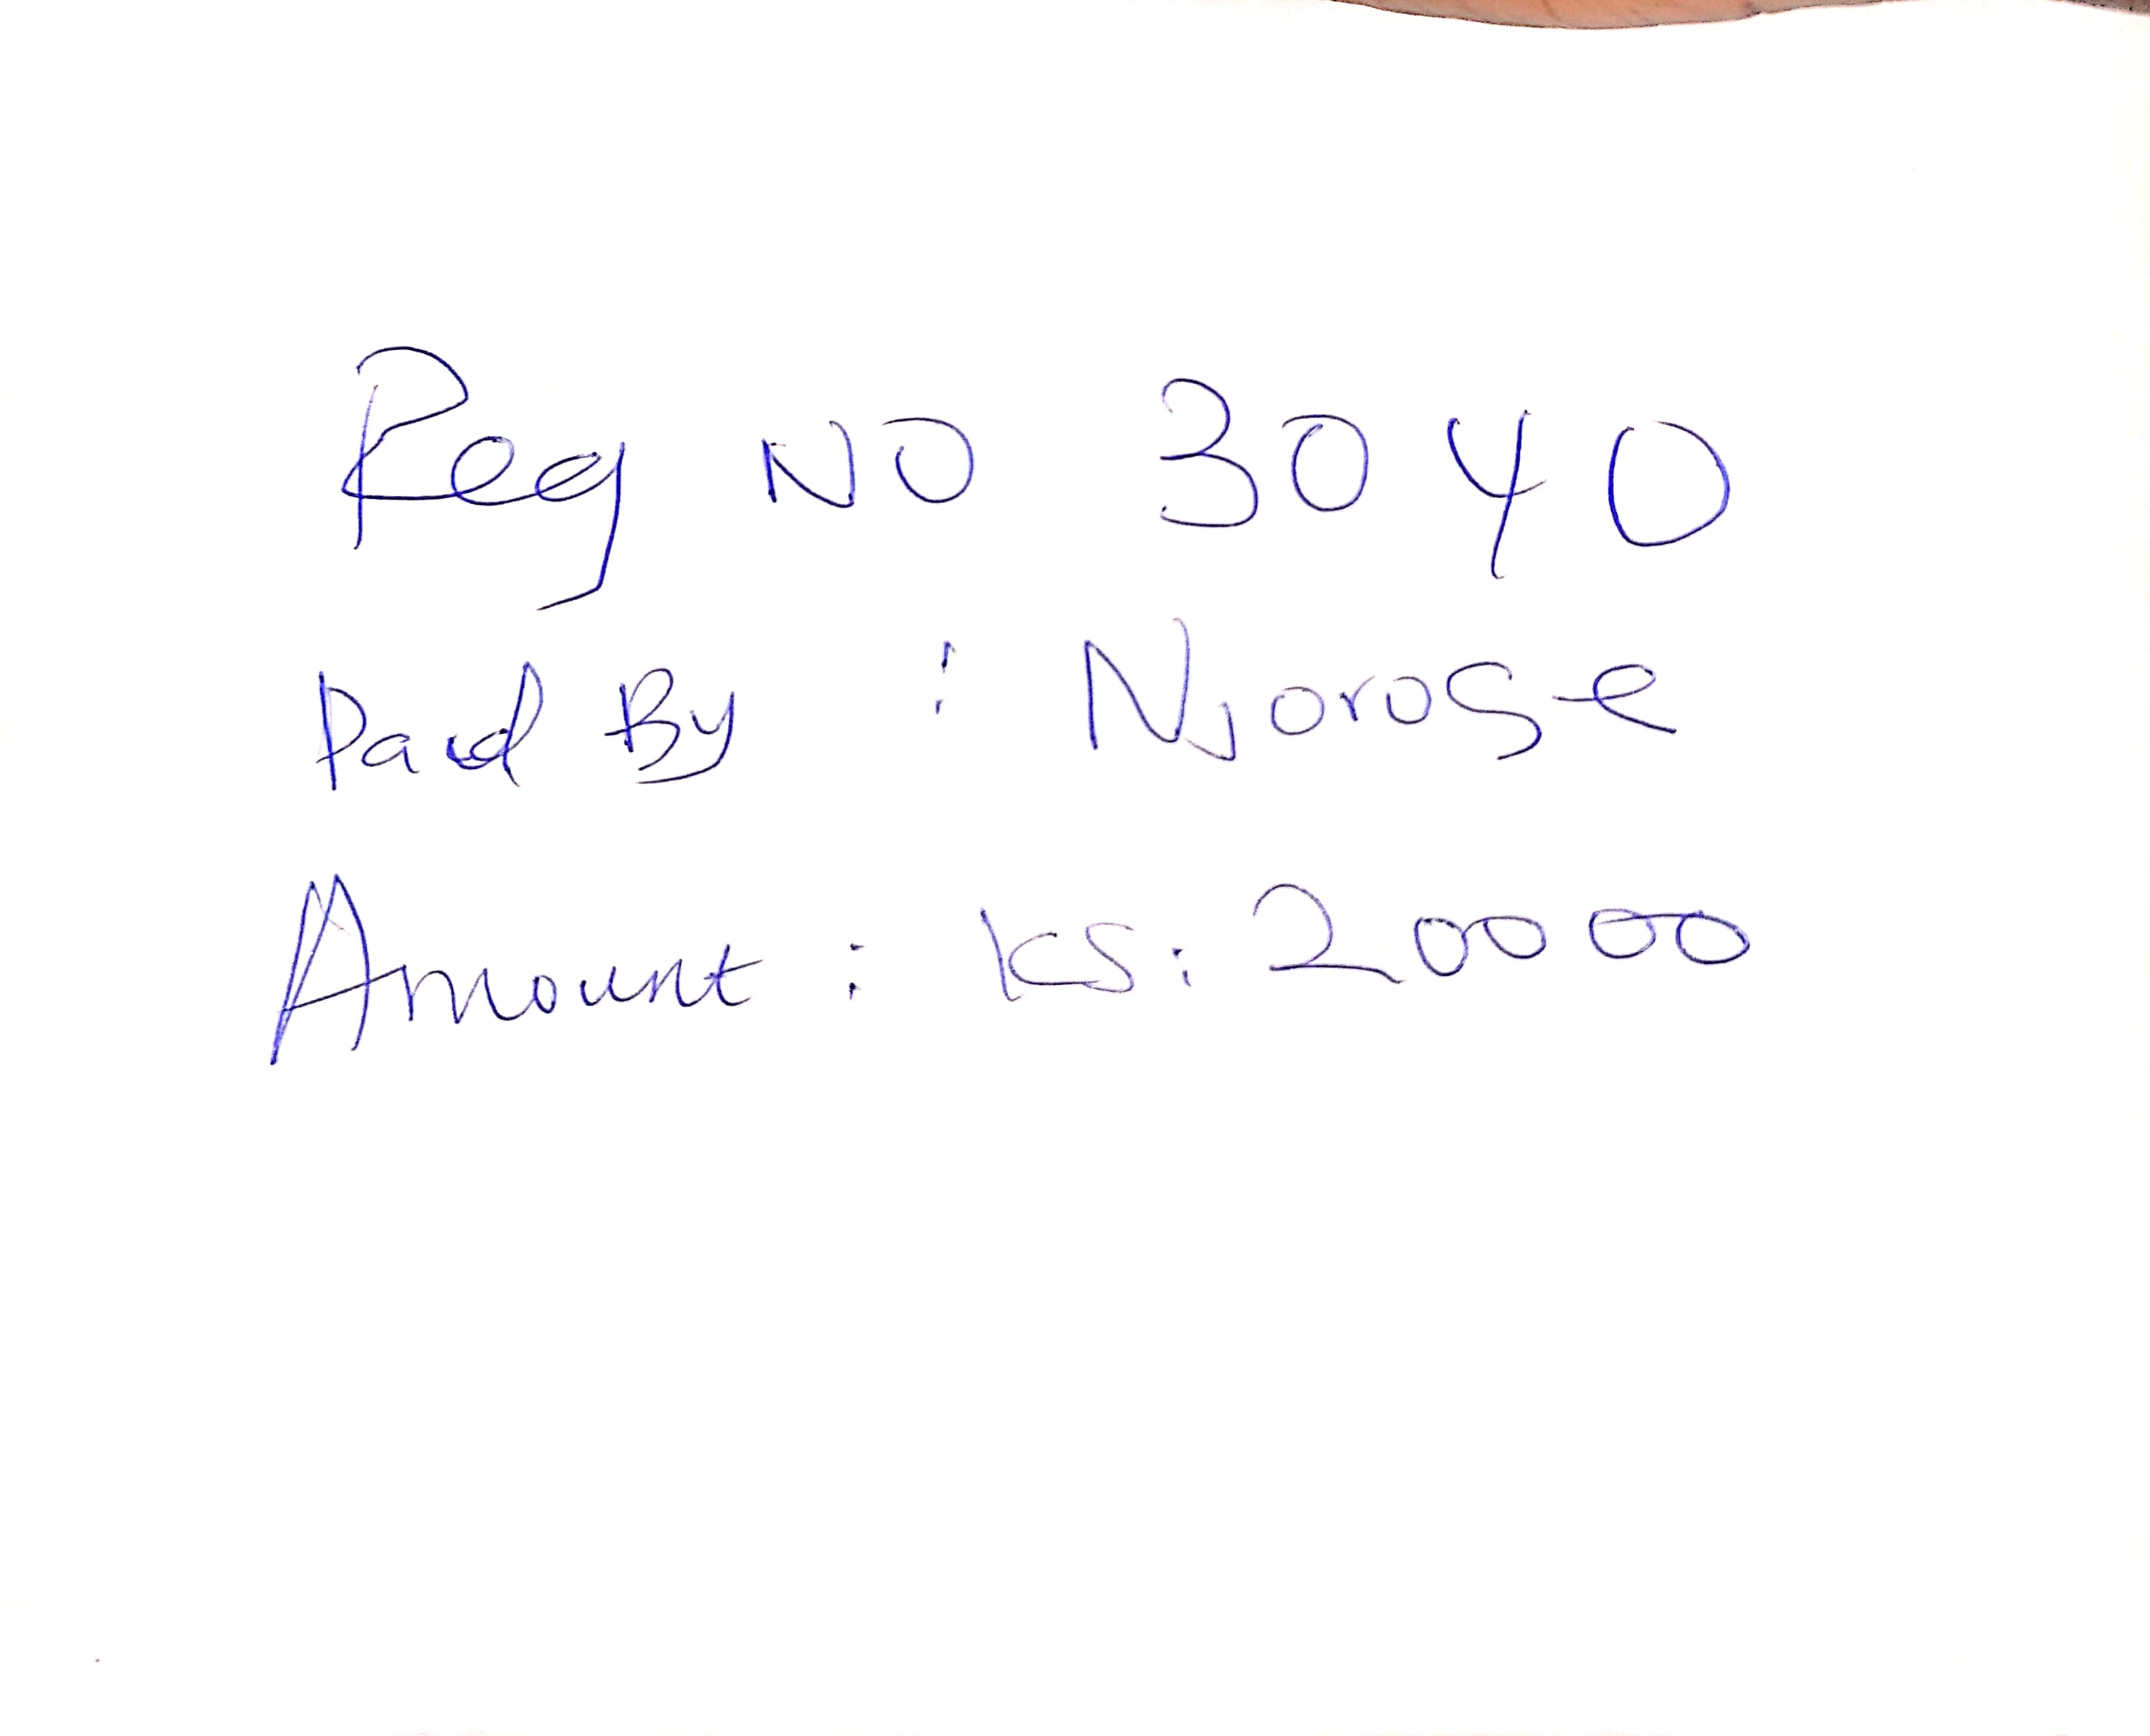 Reg NO 3040
Paid By : Njoroge
Amount : KS: 20000